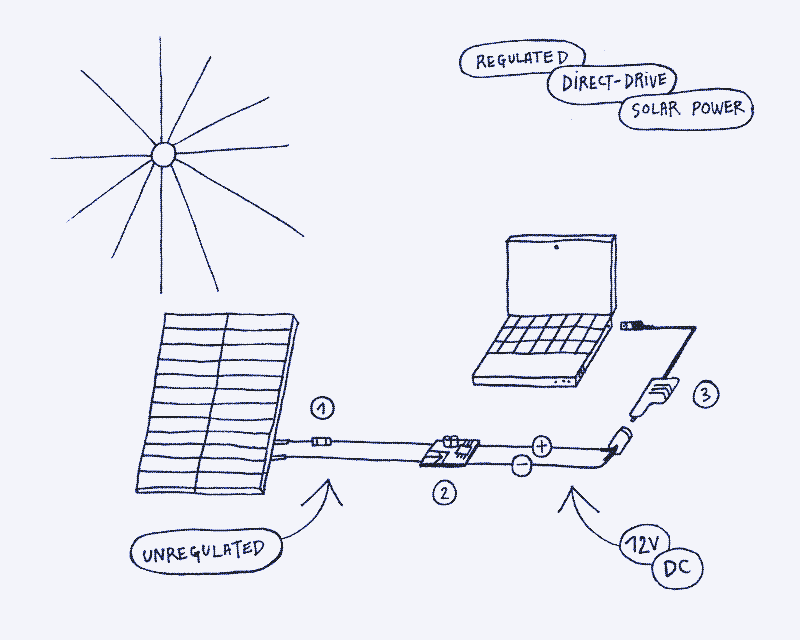 REGULATED
DIRECT-DRIVE
SOLAR POWER
3
1
+
-
2
UNREGULATED
12V
DC